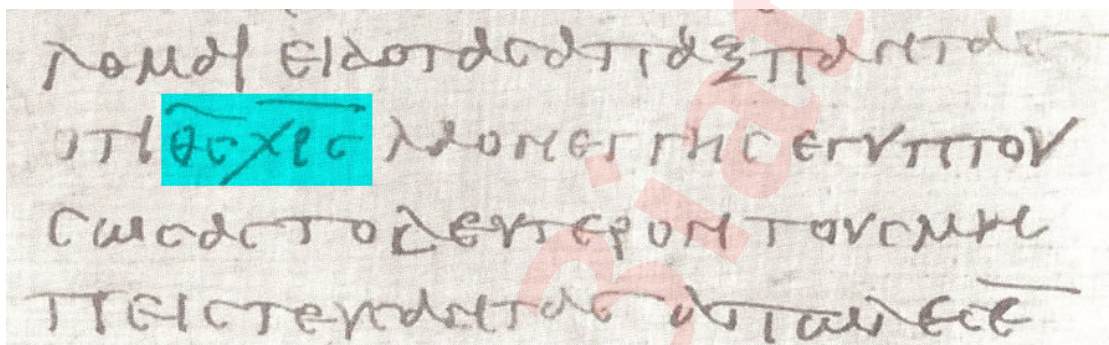 λομαι ειδοτασαπαξπαντα
οτι θ̅ς̅ χ̅ρ̅ς̅ λαονεγγησεγυπτου
σωσαςτοδευτεροντουσμη
πειστευσαντας απωλεσε̅